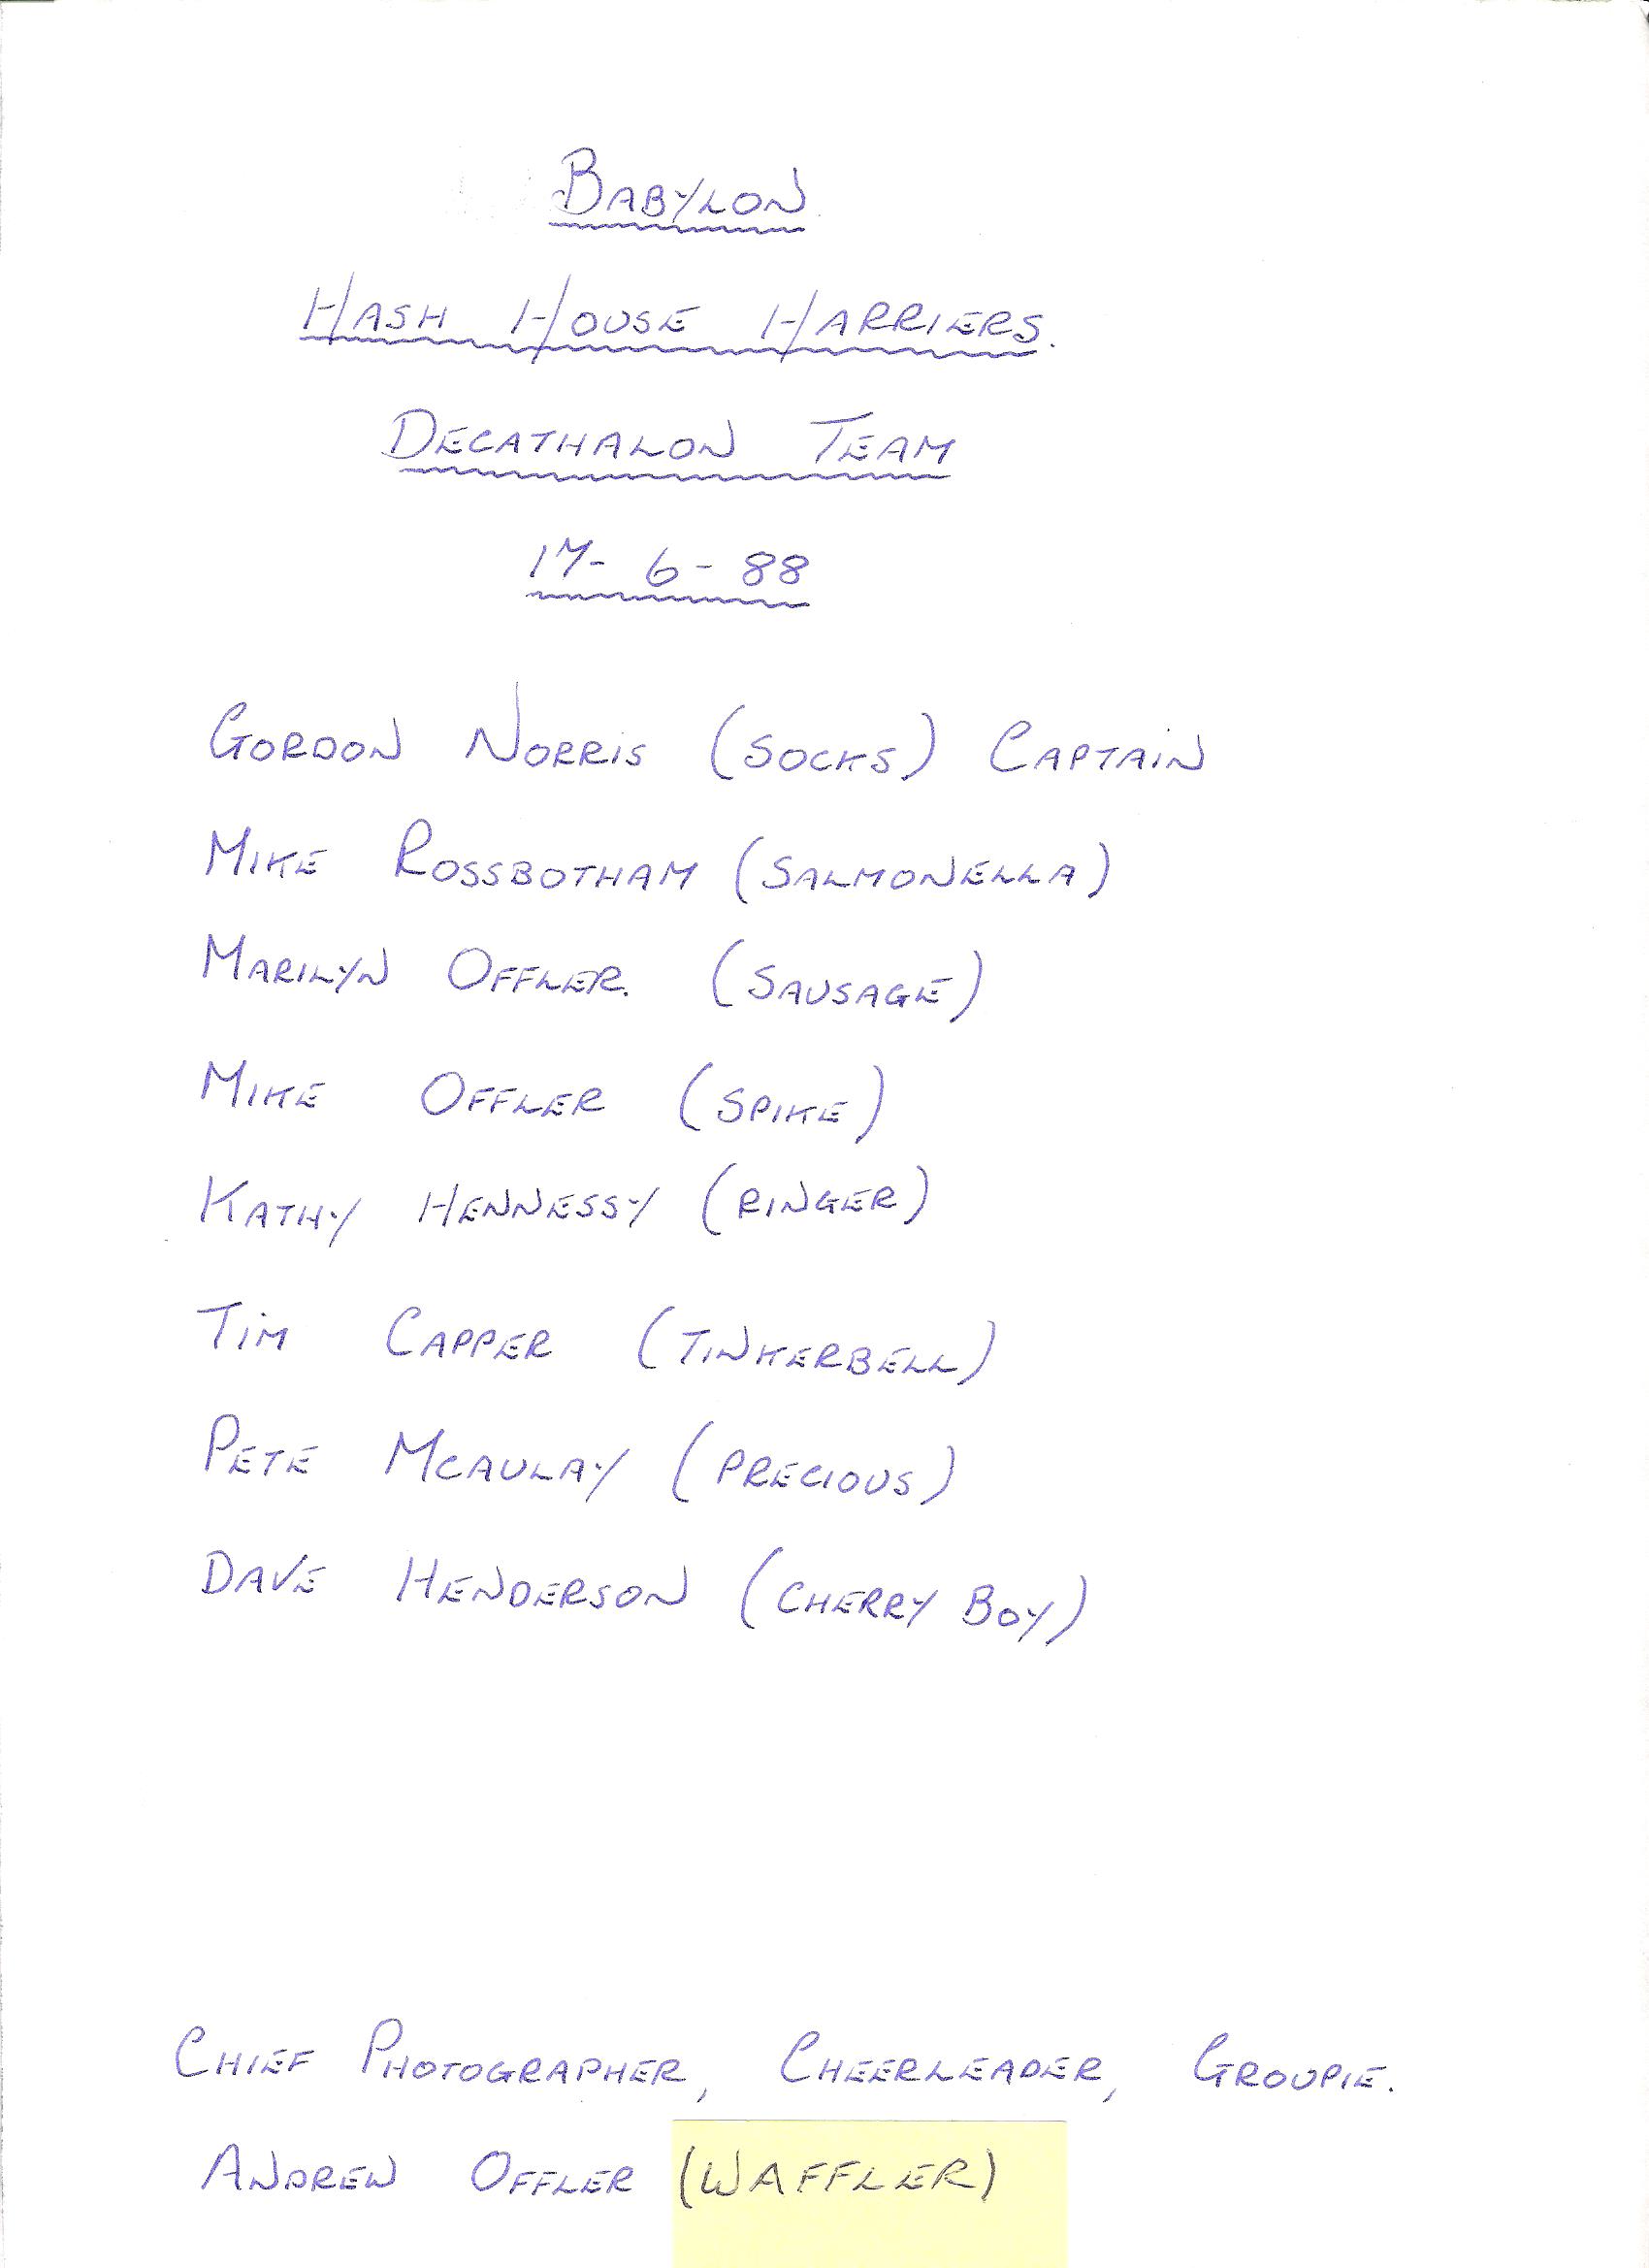 BABYLON
HASH HOUSE HARRIERS.
DECATHALON TEAM
17-6-88
GORDON NORRIS (SOCKS) CAPTAIN
MIKE ROSSBOTHAM (SALMONELLA)
MARILYN OFFLER. (SAUSAGE)
MIKE OFFLER (SPIKE)
KATHY HENNESSY (RINGER)
TIM CAPPER (TINKERBELL)
PETE MCAULAY (PRECIOUS)
DAVE HENDERSON (CHERRY BOY)
CHIEF PHOTOGRAPHER, CHEERLEADER, GROUPIE.
ANDREW OFFLER (WAFFLER)